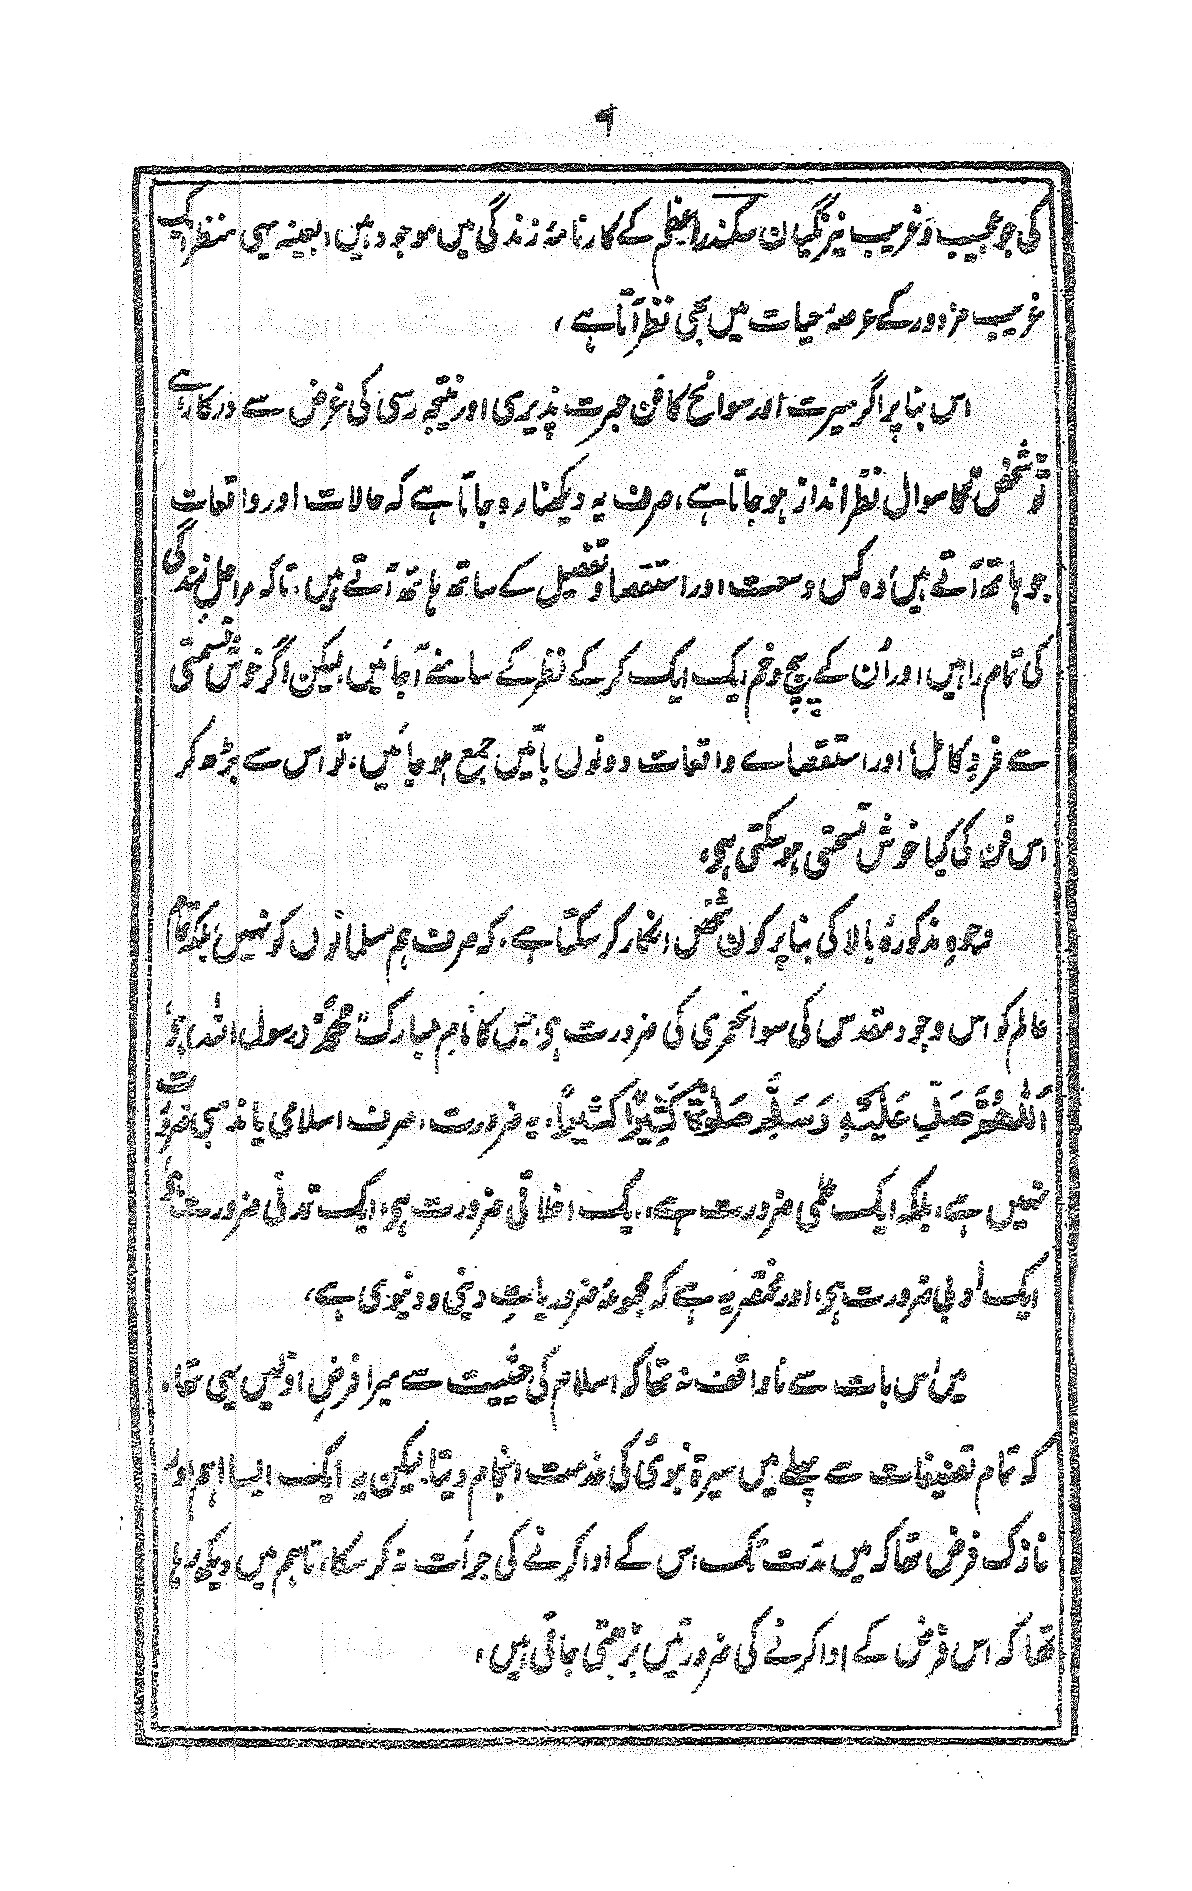 ۹
کی جو عجیب و غریب نیرنگیان سکندر اعظم کے کارنامۂ زندگی میں موجود ہیں، بعینہ یہی منظر ایک
غریب مزدور کے عرصۂ حیات میں بھی نظر آتا ہے،
اس بنا پر اگر سیرت اور سوانح کا فن عبرت پذیری اور نتیجہ رسی کی غرض سے درکار ہے
تو شخص کا سوال نظر انداز ہو جاتا ہے، صرف یہ دیکھنا رہ جاتا ہے کہ حالات اور واقعات
جو ہاتھ آتے ہیں، وہ کس وسعت اور استقصا و تفصیل کے ساتھ ہاتھ آتے ہیں، تاکہ مراحلِ زندگی
کی تمام راہیں اور اُن کے پیچ و خم ایک ایک کر کے نظر کے سامنے آ جائیں، لیکن اگر خوش قسمتی
سے فردِ کامل اور استقصاے واقعات دونوں باتیں جمع ہو جائیں، تو اس سے بڑھ کر
اس فن کی کیا خوش قسمتی ہو سکتی ہی،
وجوہِ مذکورۂ بالا کی بنا پر کون شخص انکار کر سکتا ہے، کہ صرف ہم مسلمانوں کو نہیں بلکہ تمام
عالم کو اس وجود مقدس کی سوانحعمری کی ضرورت ہی، جس کا نام مبارک محمدؐ رسول اللہ ہی
اَللّٰھُمَّ صَلِّ عَلَیْہِ وَسَلِّمْ صَلٰوۃً کَثِیْرًا کَثِیْرًا، یہ ضرورت، صرف اسلامی یا مذہبی ضرورت
نہیں ہے، بلکہ ایک علمی ضرورت ہے، ایک اخلاقی ضرورت ہی، ایک تمدنی ضرورت ہی
ایک ادبی ضرورت ہی، اور مختصر یہ ہے کہ مجموعۂ ضروریاتِ دینی و دنیوی ہے،
میں اس بات سے ناواقف نہ تھا کہ اسلام کی حیثیت سے میرا فرضِ اوّلیں یہی تھا،
کہ تمام تصنیفات سے پہلے میں سیرۃ نبویؐ کی خدمت انجام دیتا، لیکن یہ ایک ایسا اہم اور
نازک فرض تھا کہ میں مدت تک اس کے ادا کرنے کی جرأت نہ کر سکا، تاہم میں دیکھ رہا
تھا کہ اس فرض کے ادا کرنے کی ضرورتیں بڑھتی جاتی ہیں،